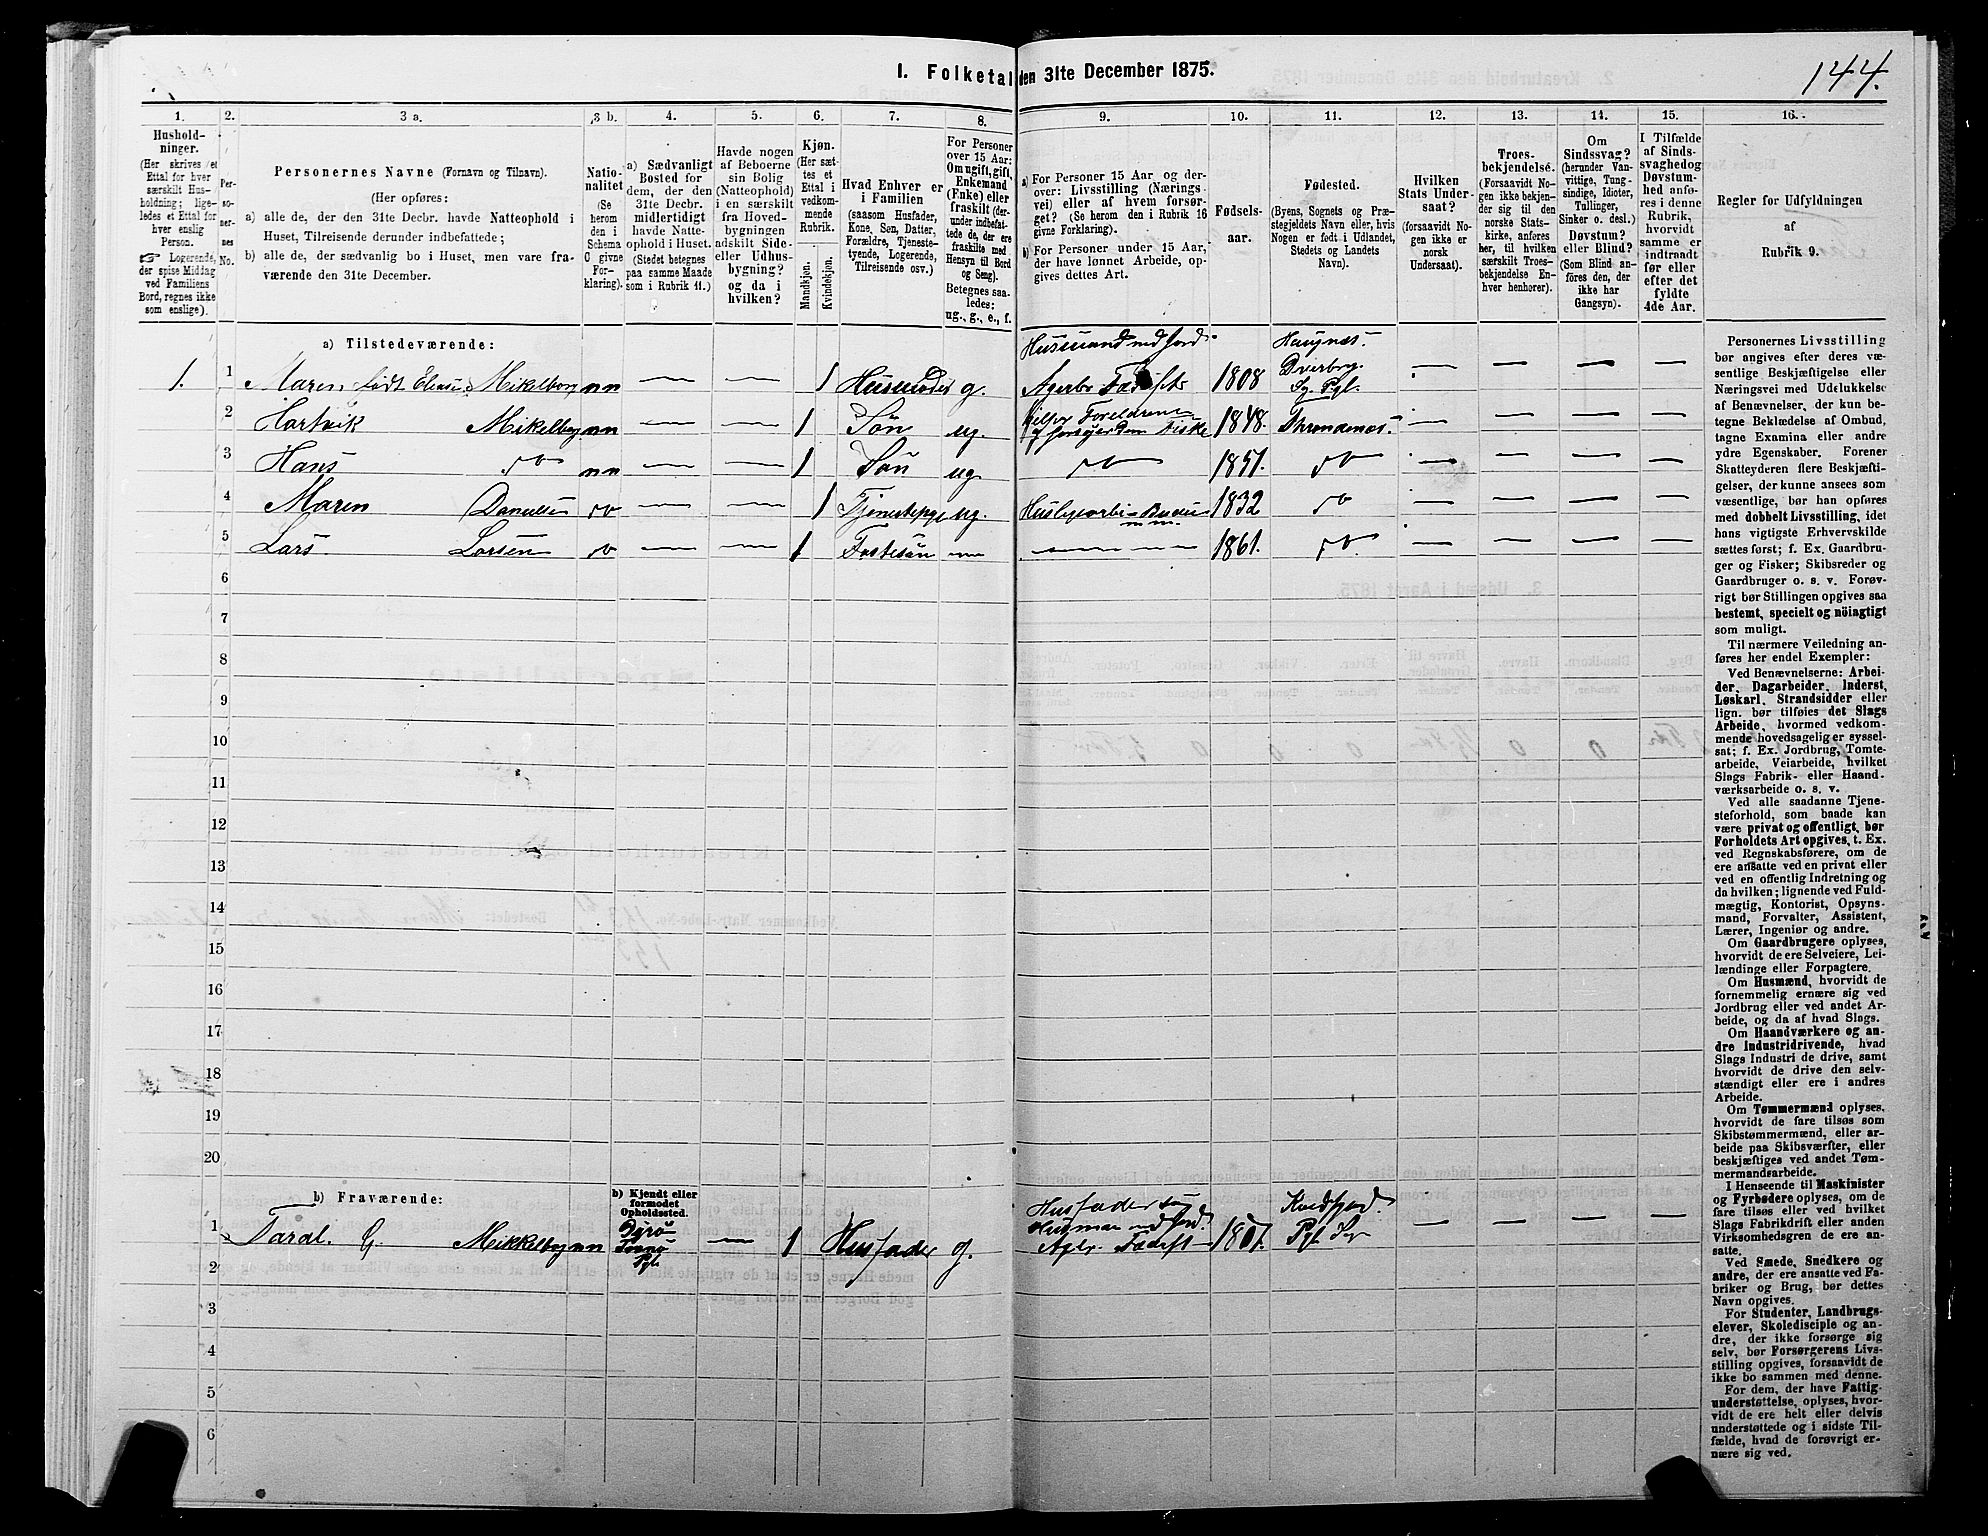 I. Folketal den 31te December 1875.
144.
1.
2.
3 a.
3 b.
4.
5.
6.
7.
8.
9.
10.
11.
12.
13.
14.
15.
16.
Hushold-
ninger.
(Her skrives et
Ettal for hver
særskilt Hus-
holdning; lige-
ledes et Ettal for
hver enslig
Person.
☞ Logerende,
der spise Middag
ved Familiens
Bord, regnes ikke
som enslige).
Per-
so-
ner-
nes
No.
Personernes Navne (Fornavn og Tilnavn).
(Her opføres:
a) alle de, der den 31te Decbr. havde Natteophold i
Huset, Tilreisende derunder indbefattede;
b) alle de, der sædvanlig bo i Huset, men vare fra-
værende den 31te December.
Natio-
nalitet
(Se
herom
den i
Schema
C givne
For-
klaring).
a) Sædvanligt
Bosted for
dem, der den
31te Decbr.
midlertidigt
havde Natte-
ophold i Huset.
(Stedet betegnes
paa samme Maade
som i Rubrik 11.)
Havde nogen
af Beboerne
sin Bolig
(Natteophold)
i en særskilt
fra Hoved-
bygningen
adskilt Side-
eller Udhus-
bygning?
og da i
hvilken?
Kjøn.
(Her sæt-
tes et
Ettal i
vedkom-
mende
Rubrik.
Mandkjøn.
Kvindekjøn.
Hvad Enhver er
i Familien
(saasom Husfader,
Kone, Søn, Datter,
Forældre, Tjeneste-
tyende, Logerende,
Tilreisende osv.)
For Personer
over 15 Aar:
Om ugift, gift,
Enkemand
(Enke) eller
fraskilt (der-
under indbefat-
tede de, der ere
fraskilte med
Hensyn til Bord
og Seng).
Betegnes saa-
ledes:
ug., g., e., f.
a) For Personer 15 Aar og der-
over: Livsstilling (Nærings-
vei) eller af hvem forsør-
get? (Se herom den i Rubrik 16
givne Forklaring).
b) For Personer under 15 Aar,
der have lønnet Arbeide, op-
gives dettes Art.
Fødsels-
aar.
Fødested.
(Byens, Sognets og Præ-
stegjeldets Navn eller, hvis
Nogen er født i Udlandet,
Stedets og Landets
Navn).
Hvilken
Stats Under-
saat?
(forsaavidt No-
gen ikke er
norsk
Undersaat).
Troes-
bekjendelse.
(Forsaavidt No-
gen ikke bekjen-
der sig til den
norske Stats-
kirke, anføres
her, til hvilken
særskilt Troes-
bekjendelse En-
hver henhører).
Om
Sindssvag?
(herunder Van-
vittige, Tung-
sindige, Idioter,
Tullinger,
Sinker o. desl.)
Døvstum?
eller Blind?
(Som Blind an-
føres den, der
ikke har
Gangsyn).
I Tilfælde
af Sinds-
svaghed og
Døvstum-
hed anfø-
res i denne
Rubrik,
hvorvidt
samme er
indtraadt
før eller
efter det
fyldte
4de Aar.
Regler for Udfyldningen
af
Rubrik 9.
a) Tilstedeværende:
Husmand med Jord
1. 1 Maren født Mikelborg nn — — 1 Husmoder g. 1808 Dverberg — — — —
2 Hartvik Mikelborg nn — — 1 Søn ug. 1848. Throndenæs. — — — —
3 Hans do nn — — 1 Søn ug. do 1851. do — — — —
4 Maren do — — 1 Tjenestepige ug. 1832 do — — — —
5 Lars Larsen do — — 1 Fostersøn — — 1861. do — — — —
6
7
8
9
10
11
12
13
14
15
16
17
18
19
20
b) Fraværende:
b) Kjendt eller
formodet
Opholdssted.
1 G. Mikkelborg nn — 1 Husfader g. 1807. Kvedfjord. Pgl — — — —
2
3
4
5
6
Personernes Livsstilling
bør angives efter deres væ-
sentlige Beskjæftigelse eller
Næringsvei med Udelukkelse
af Benævnelser, der kun be-
tegne Beklædelse af Ombud,
tagne Examina eller andre
ydre Egenskaber. Forener
Skatteyderen flere Beskjæfti-
gelser, der kunne ansees som
væsentlige, bør han opføres
med dobbelt Livsstilling, idet
hans vigtigste Erhvervskilde
sættes først; f. Ex. Gaardbru-
ger og Fisker; Skibsreder og
Gaardbruger o. s. v. Forøv-
rigt bør Stillingen opgives saa
bestemt, specielt og nøiagtigt
som muligt.
Til nærmere Veiledning an-
føres her endel Exempler:
Ved Benævnelserne: Arbei-
der, Dagarbeider, Inderst,
Løskarl, Strandsidder eller
lign. bør tilføies det Slags
Arbeide, hvormed vedkom-
mende hovedsagelig er syssel-
sat; f. Ex. Jordbrug, Tomte-
arbeide, Veiarbeide, hvilket
Slags Fabrik- eller Haand-
værksarbeide o. s. v.
Ved alle saadanne Tjene-
steforhold, som baade kan
være privat og offentligt, bør
Forholdets Art opgives, t. Ex.
ved Regnskabsførere, om de
ere ansatte ved en privat eller
ved en offentlig Indretning og
da hvilken; lignende ved Fuld-
mægtig, Kontorist, Opsyns-
mand, Forvalter, Assistent,
Lærer, Ingeniør og andre.
Om Gaardbrugere oplyses,
hvorvidt de ere Selveiere, Lei-
lændinge eller Forpagtere.
Om Husmænd, hvorvidt de
fornemmelig ernære sig ved
Jordbrug eller ved andet Ar-
beide, og da af hvad Slags.
Om Haandværkere og an-
dre Industridrivende, hvad
Slags Industri de drive, samt
hvorvidt de drive den selv-
stændigt eller ere i andres
Arbeide.
Om Tømmermænd oplyses,
hvorvidt de fare tilsøs som
Skibstømmermænd, eller ar-
beide paa Skibsværfter, eller
beskjæftiges ved andet Tøm-
mermandsarbeide.
I Henseende til Maskinister
og Fyrbødere oplyses, om de
fare tilsøs eller ved hvilket
Slags Fabrikdrift eller anden
Virksomhedsgren de ere an-
satte.
Ved Smede, Snedkere og
andre, der ere ansatte ved Fa-
briker og Brug, bør dettes
Navn opgives.
For Studenter, Landbrugs-
elever, Skoledisciple og an-
dre, der ikke forsørge sig
selv, bør Forsørgerens Livs-
stilling opgives, forsaavidt de
ikke bo sammen med denne.
For dem, der have Fattig-
understøttelse, oplyses, hvor-
vidt de ere helt eller delvis
understøttede og i sidste Til-
fælde, hvad de forøvrigt er-
nære sig ved.